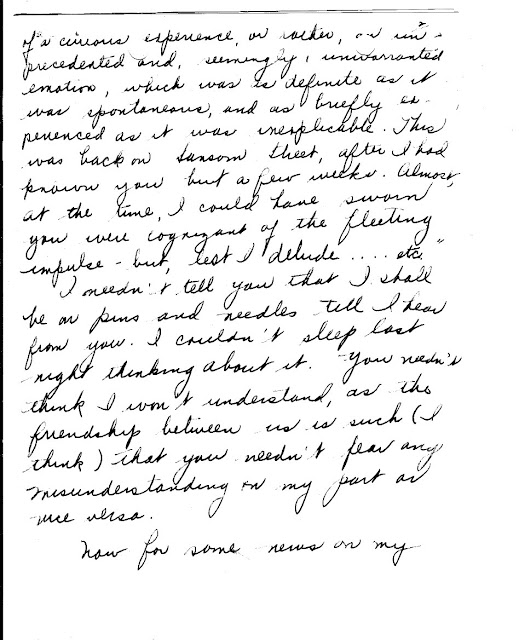 of a curious experience, or rather, an un-
precedented and, seemingly, unwarranted
emotion, which was as definite as it
was spontaneous, and as briefly ex-
perienced as it was inexplicable. This
was back on Sansom Street, after I had
known you but a few weeks. Almost,
at the time, I could have sworn
you were cognizant of the fleeting
impulse - but, lest I delude ..... etc."
I needn't tell you that I shall
be on pins and needles till I hear
from you. I couldn't sleep last
night thinking about it. You needn't
think I won't understand, as the
friendship between us is such (I
think) that you needn't fear any
misunderstanding on my part or
vice versa.
Now for some news on my